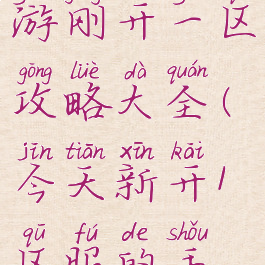 游刚开一区
gōng lüè dà quán
攻略大全(
jīn tiān xīn kāi 1
今天新开1
qū fú de shǒu
区服的手